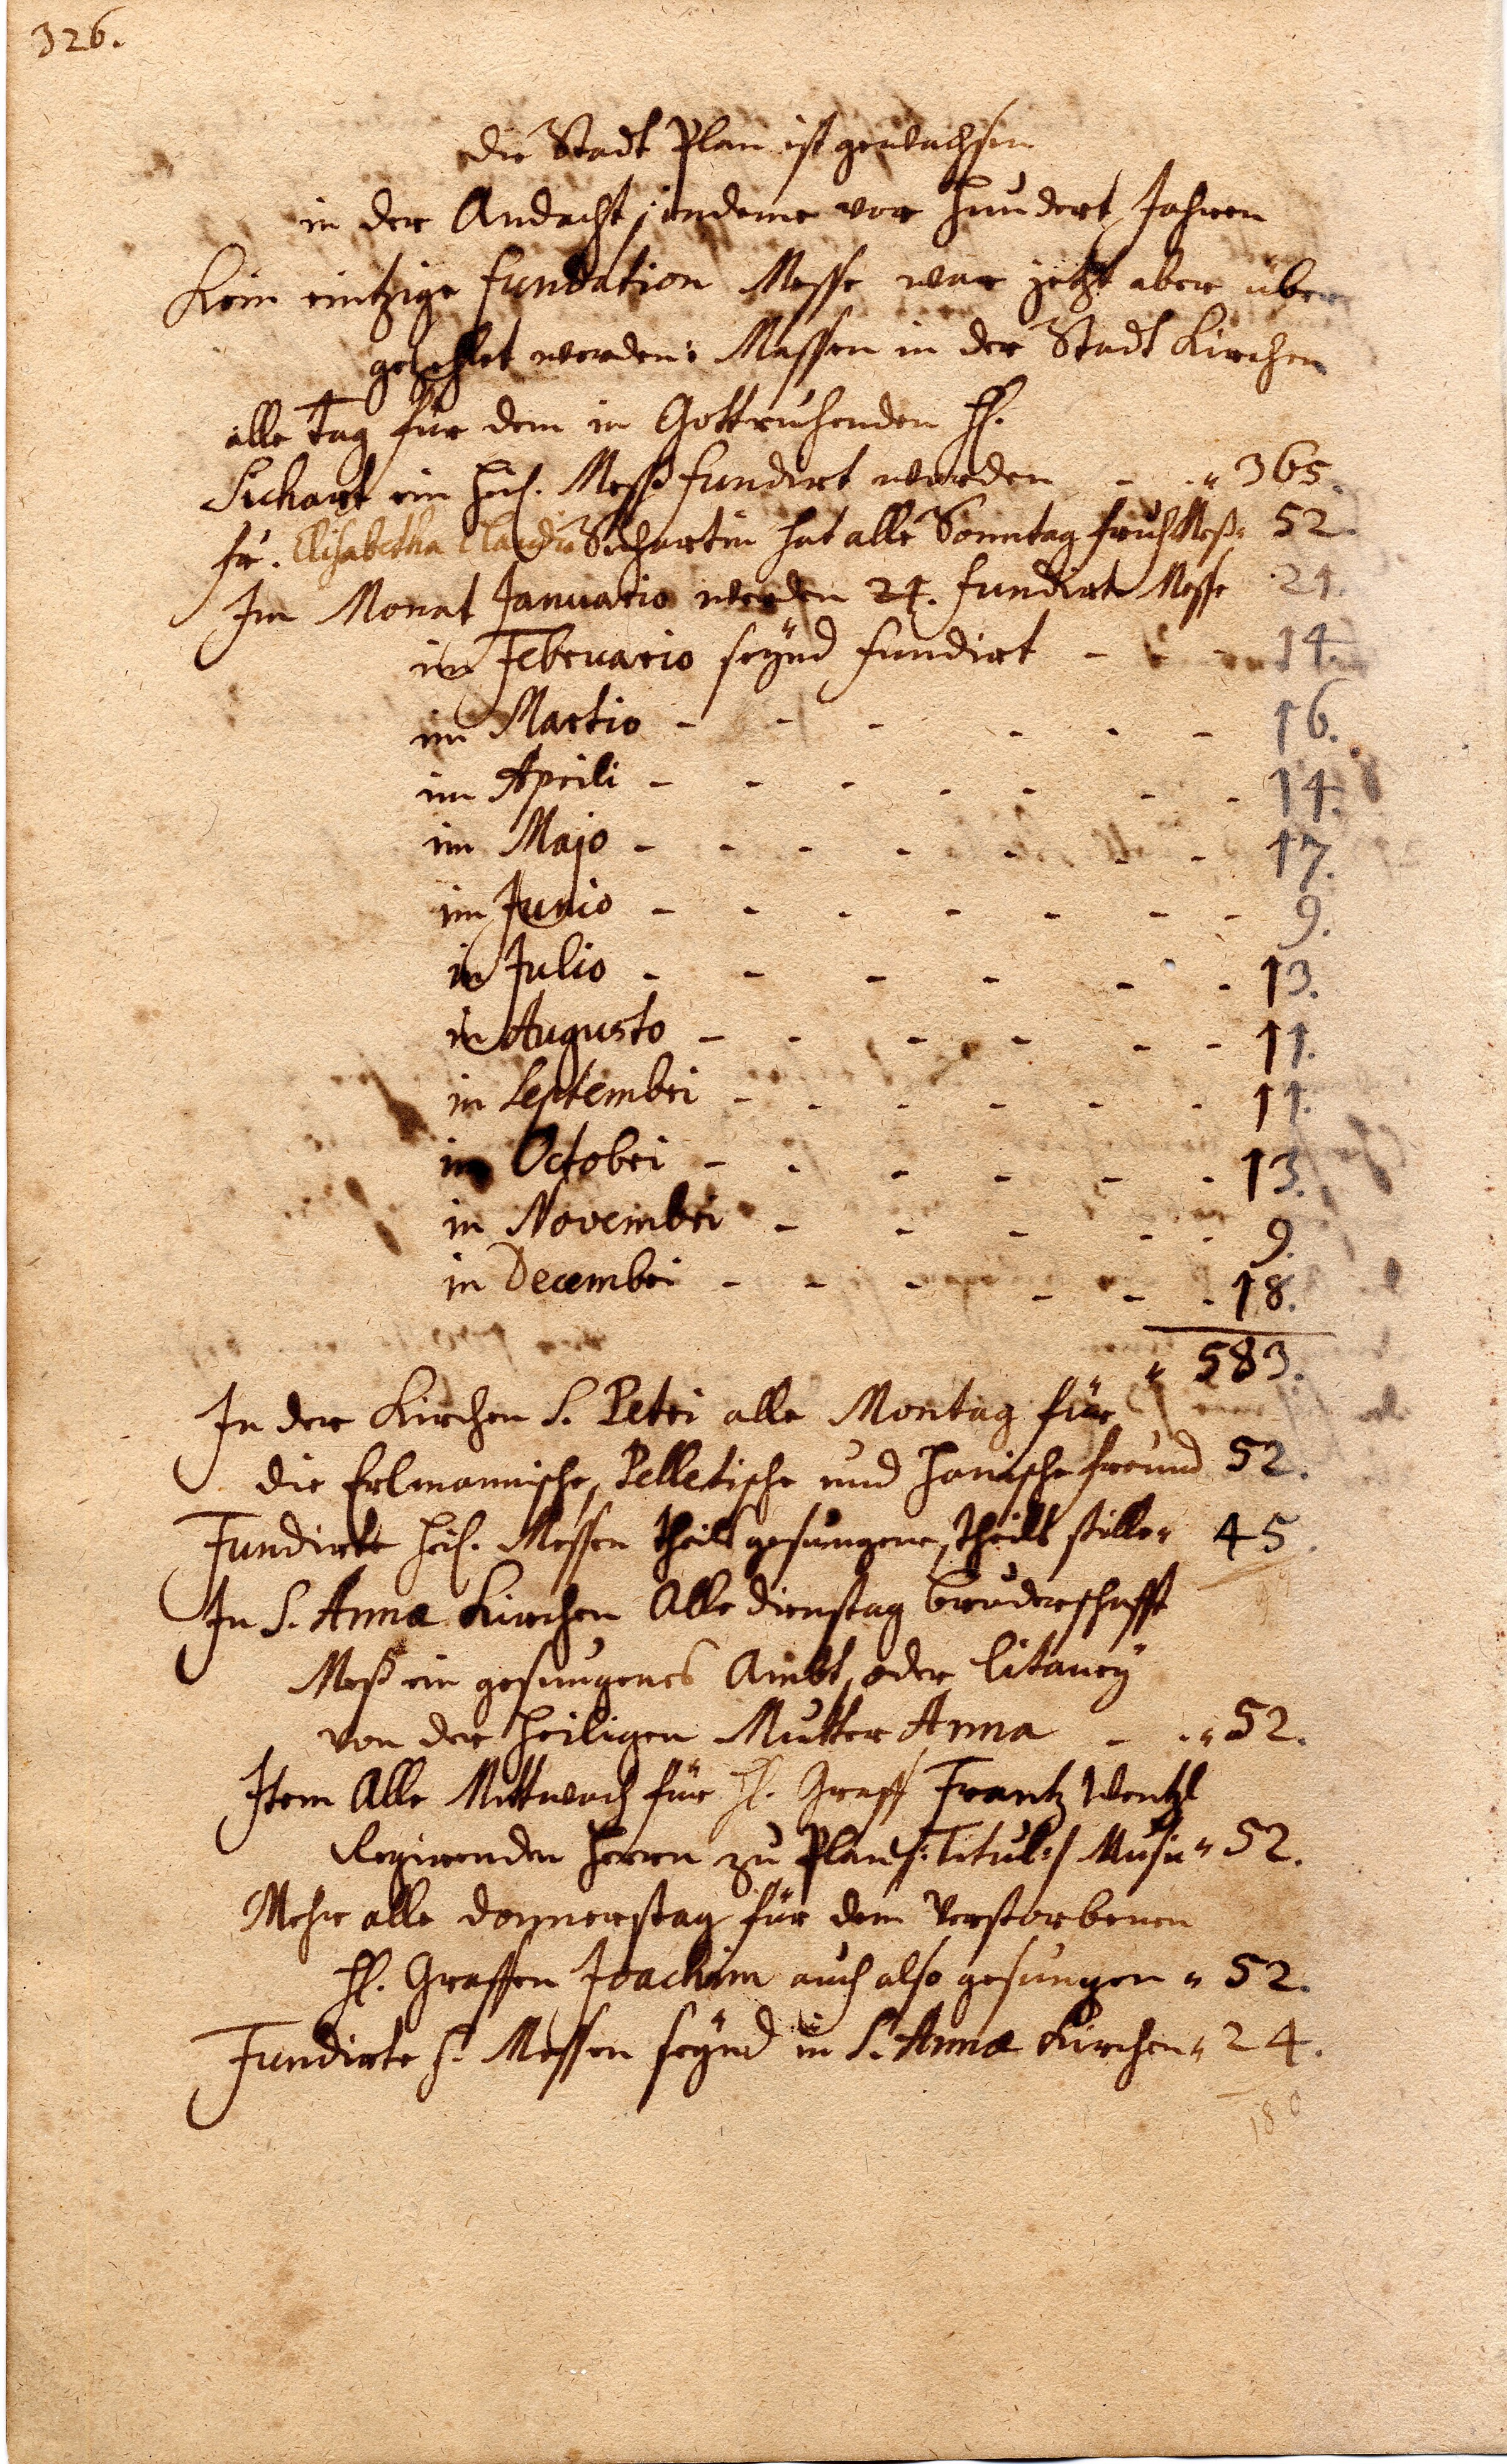 326.
Die Stadt Plan ist gewachsen
in der Andacht, indeme vor hundert Jahren
Kein eintzige fundation Messe war jetzt aber über
gezehlet werden: Massen in der Stadt Kirchen
alle Tag für dem in Gott ruhenden H.
Sichart ein heil. Meß fundirt worden - " 365.
fr. Elisabetha Claudia Sichartin hat alle Sonntag fruh Meß " 52.
Im Monat Januario werden 24. fundirte Messe 24.
im Februario seynd fundirt - - 14.
im Martio - - - - - - 16.
im Aprili - - - - - - - 14.
im Majo - - - - - - - 17.
im Junio - - - - - - - 9.
in Julio - - - - - - 13.
in Augusto - - - - - - 11.
in Septembri - - - - - - 11.
in Octobri - - - - - - 13.
in Novembri - - - - - 9.
in Decembri - - - - - - 18.
" 583.
In der Kirchen S. Petri alle Montag für
die Erlmannische, Pelletische und Hanische freund 52.
Fundirte heil. Messen theils gesungene, theils stille " 45.
In S. Anna Kirchen Alle Dienstag bruderschafft
Meß ein gesungenes Ambt, oder Litaney
von der Heiligen Mutter Anna - " 52.
Item Alle Mittwoch für H. Graff Frantz Wentzl
Regirenden Herrn zu Plan /: Titul :/ Musir " 52.
Mehr alle Donnerstag für dem Verstorbenen
H. Graffen Joachim auch also gesungen " 52.
Fundirte h. Messen seynd in S. Annæ Kirchen " 24.
180